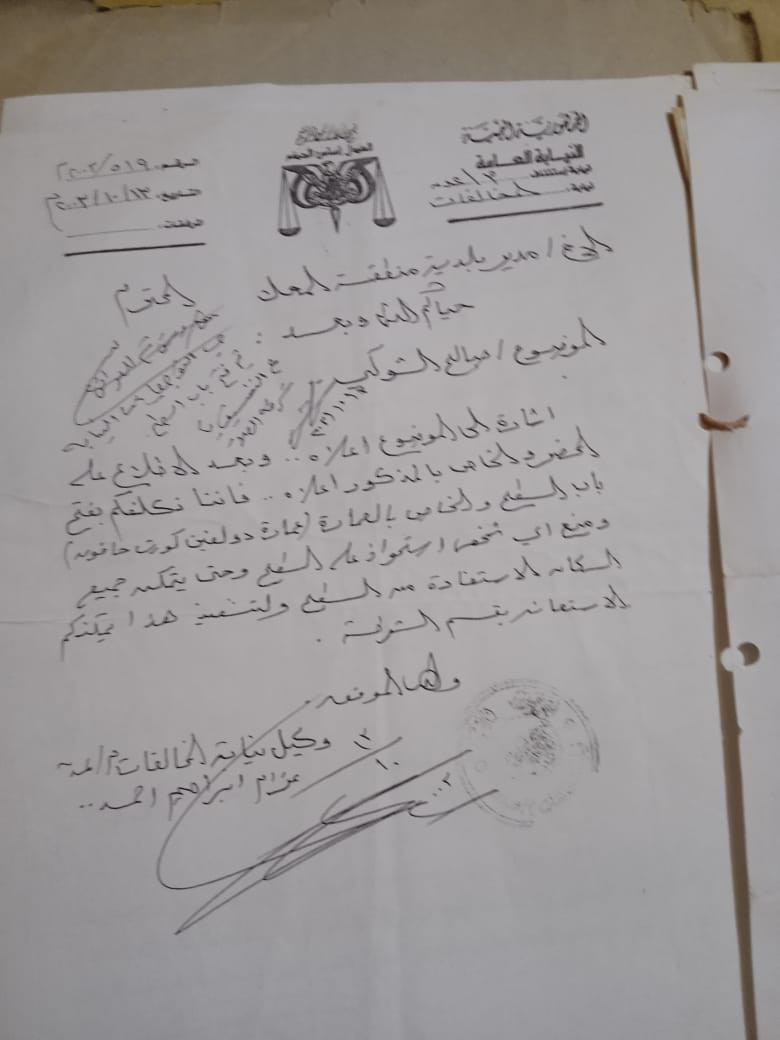 الجمهورية اليمنية
النيابة العامة
نيابة استئناف / م عدن
نيابة: المخالفات
العدل أساس الحكم
التاريخ: ٢٠٠٢/١٠/١٣م
المرفقات:
الأخ / مدير بلدية منطقة المعلا المحترم
حياكم الله وبعد :
الموضوع / صالح الشوكي
اشارة الى الموضوع اعلاه .. وبعد الاطلاع على
المحضر والخاص بالمذكور اعلاه .. فاننا نكلفكم بفتح
باب السطح والخاص بالعمارة (عمارة دولفين كورت حافون)
ومنع اي شخص استحواذ على السطح وحتى يتمكن جميع
السكان الاستفادة من السطح ولتنفيذ هذا يمكنكم
الاستعانة بقسم الشرطة .
والله الموفق
وكيل نيابة المخالفات م/عدن
عزام ابراهيم احمد ..